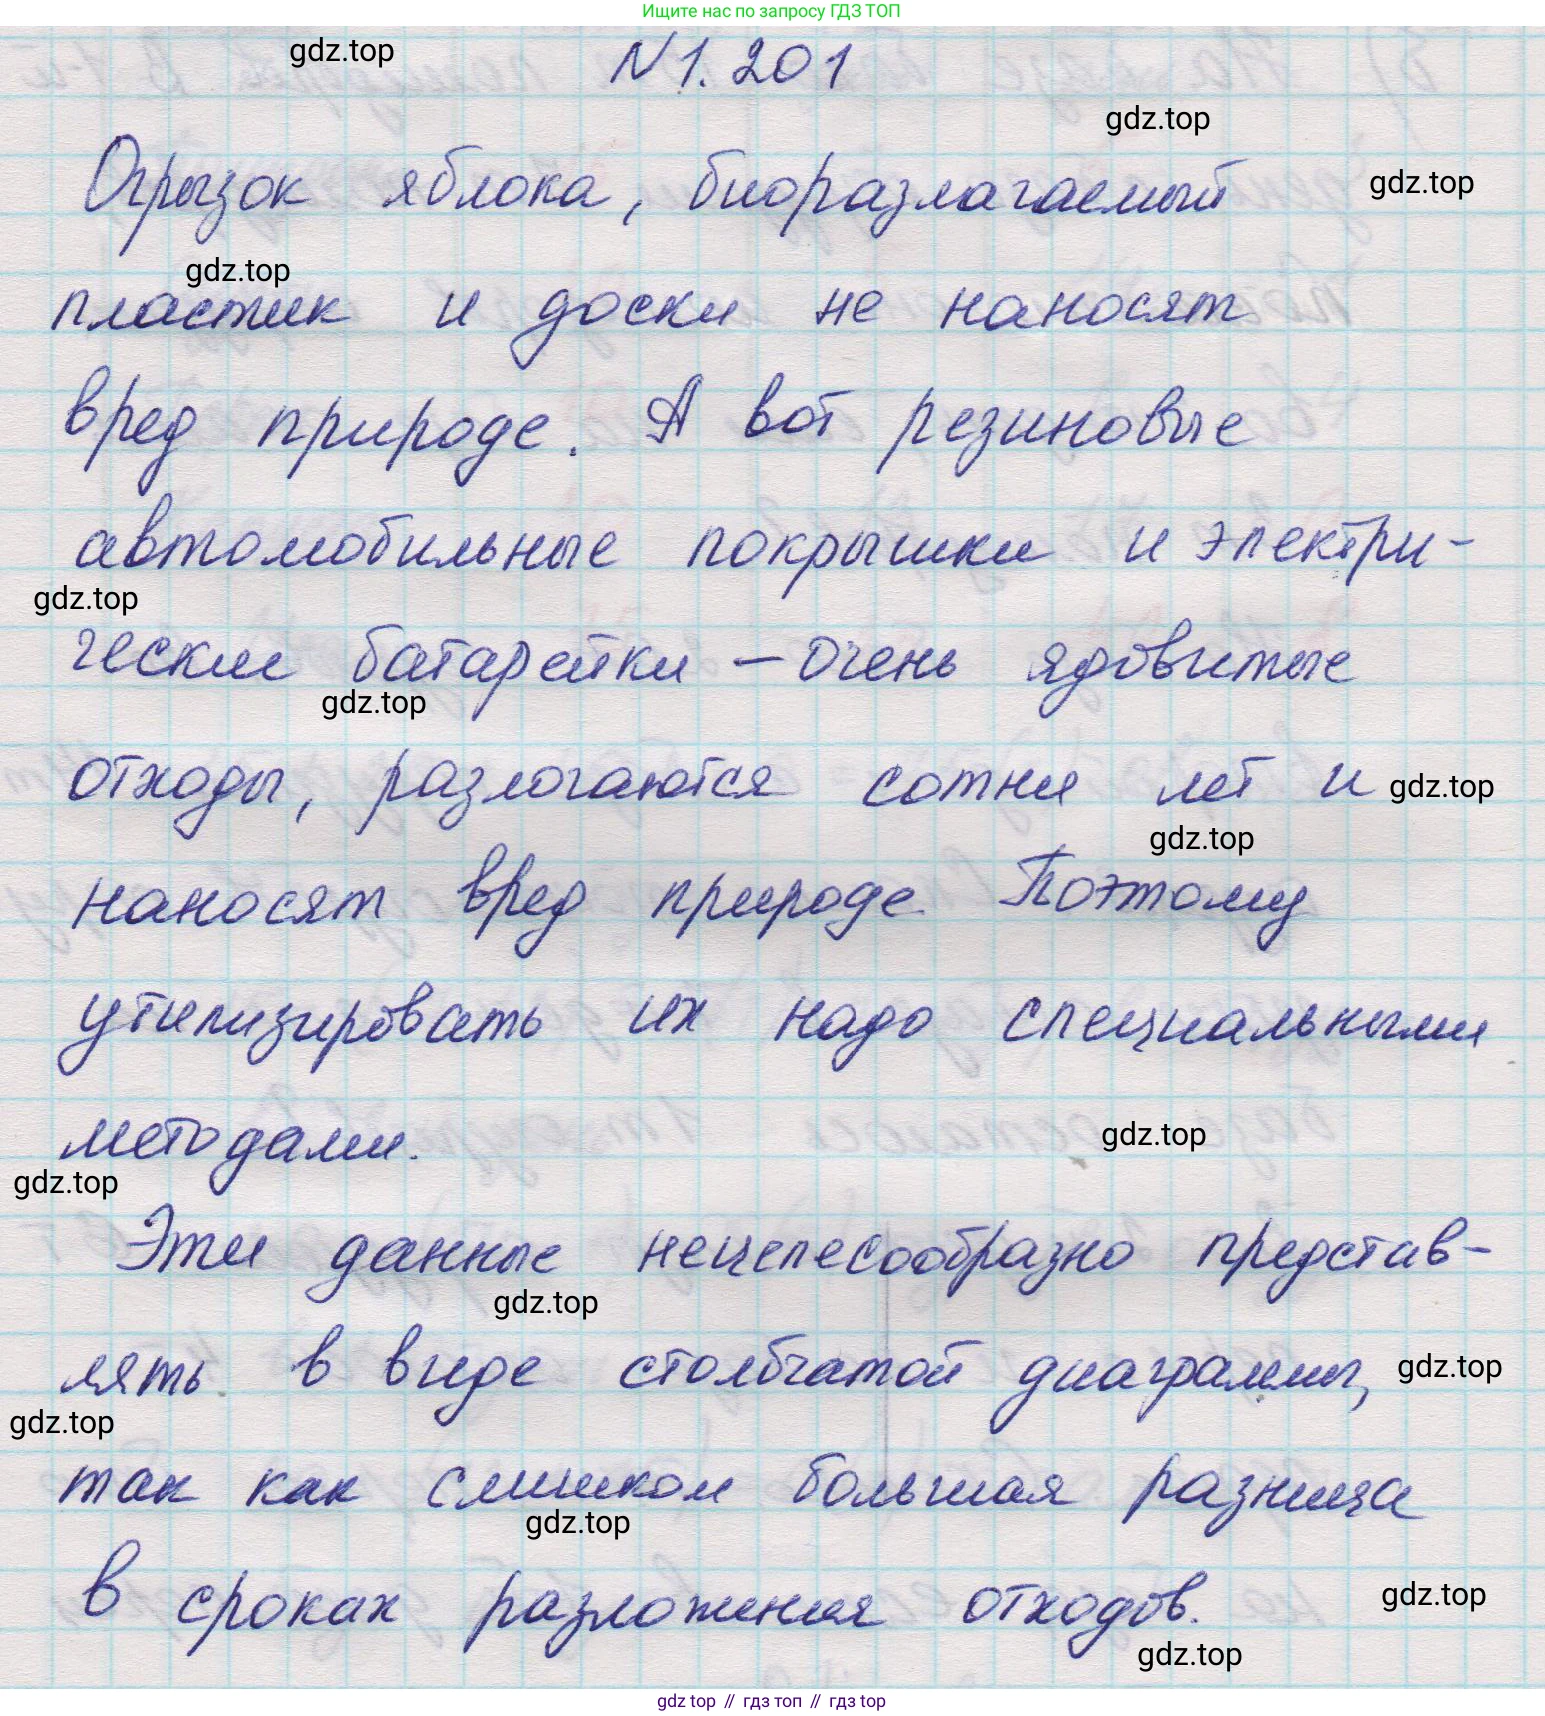 Ищите нас по запросу ГДЗ ТОП
gdz.top
N 1.201
gdz.top
Огрызок яблока, биоразлагаемый
gdz.top
gdz.top
пластик и доски не наносят
вред природе. А вот резиновые
автомобильные покрышки и электри-
gdz.top
ческие батарейки – очень ядовитые
gdz.top
отходы, разлогаются сотни лет и
gdz.top
gdz.top
наносят вред природе. Поэтому
утилизировать их надо специальными
методами.
gdz.top
gdz.top
Эти данные нецелесообразно представ-
gdz.top
лять в виде столбчатой диаграммы,
gdz.top
gdz.top
так как слишком большая разница
gdz.top
в сроках разложения отходов.
gdz.top
gdz.top
gdz top // гдз топ // гдз top